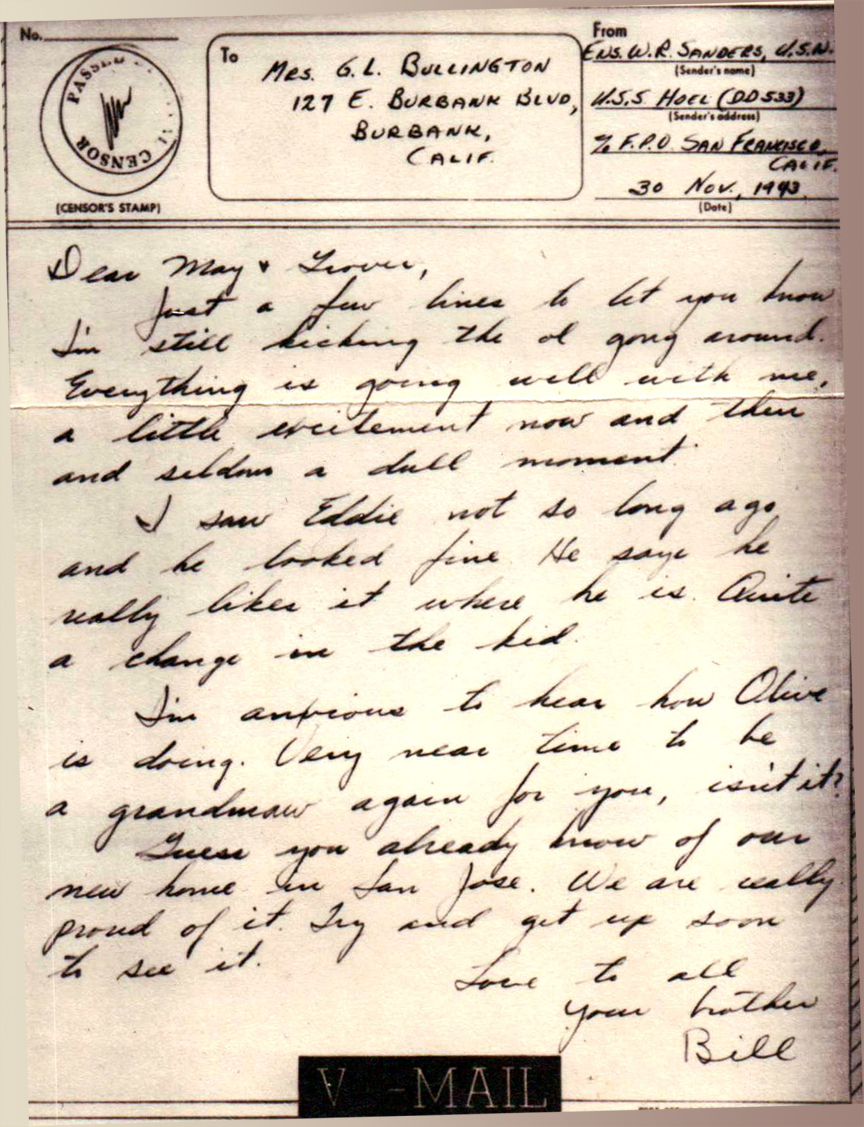 No.
PASSED
CENSOR
(CENSOR'S STAMP)
To
MRS. G. L. BULLINGTON
127 E. BURBANK BLVD,
BURBANK,
CALIF.
From
ENS. W. R. SANDERS, U.S.N.
(Sender's name)
U.S.S HOEL (DD533)
(Sender's address)
% F.P.O. SAN FRANCISCO,
CALIF.
30 NOV., 1943
(Date)
Dear May & Grover,
Just a few lines to let you know
I'm still kicking the ol gong around.
Everything is going well with me,
a little excitement now and then
and seldom a dull moment.
I saw Eddie not so long ago
and he looked fine. He says he
really likes it where he is. Quite
a change in the kid.
I'm anxious to hear how Olive
is doing. Very near time to be
a grandmaw again for you, isn't it?
Guess you already know of our
new home in San Jose. We are really
proud of it. Try and get up soon
to see it.
Love to all
Your brother
Bill
V-MAIL